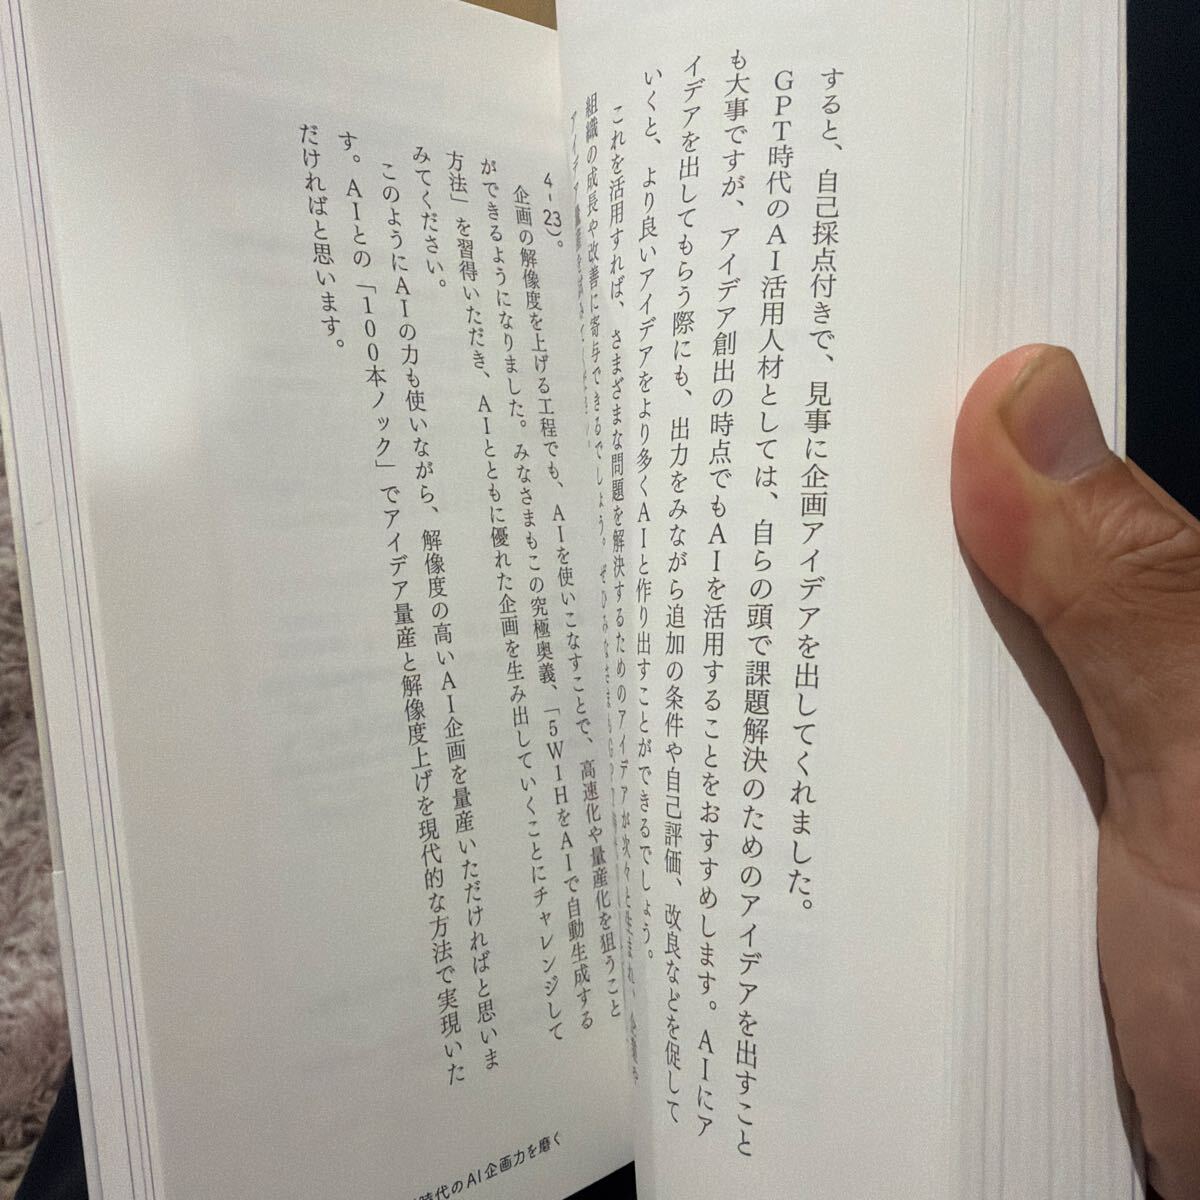 すると、自己採点付きで、見事に企画アイデアを出してくれました。
GPT時代のAI活用人材としては、自らの頭で課題解決のためのアイデアを出すこと
も大事ですが、アイデア創出の時点でもAIを活用することをおすすめします。AIにア
イデアを出してもらう際にも、出力をみながら追加の条件や自己評価、改良などを促して
いくと、より良いアイデアをより多くAIと作り出すことができるでしょう。
これを活用すれば、さまざまな問題を解決するためのアイデアが次々と生まれ、
組織の成長や改善に寄与できるでしょう。ぜひみなさまも
アイデア
4-23)。
企画の解像度を上げる工程でも、AIを使いこなすことで、高速化や量産化を狙うこと
ができるようになりました。みなさまもこの究極奥義、「5W1HをAIで自動生成する
方法」を習得いただき、AIとともに優れた企画を生み出していくことにチャレンジして
みてください。
このようにAIの力も使いながら、解像度の高いAI企画を量産いただければと思いま
す。AIとの「100本ノック」でアイデア量産と解像度上げを現代的な方法で実現いた
だければと思います。
時代のAI企画力を磨く